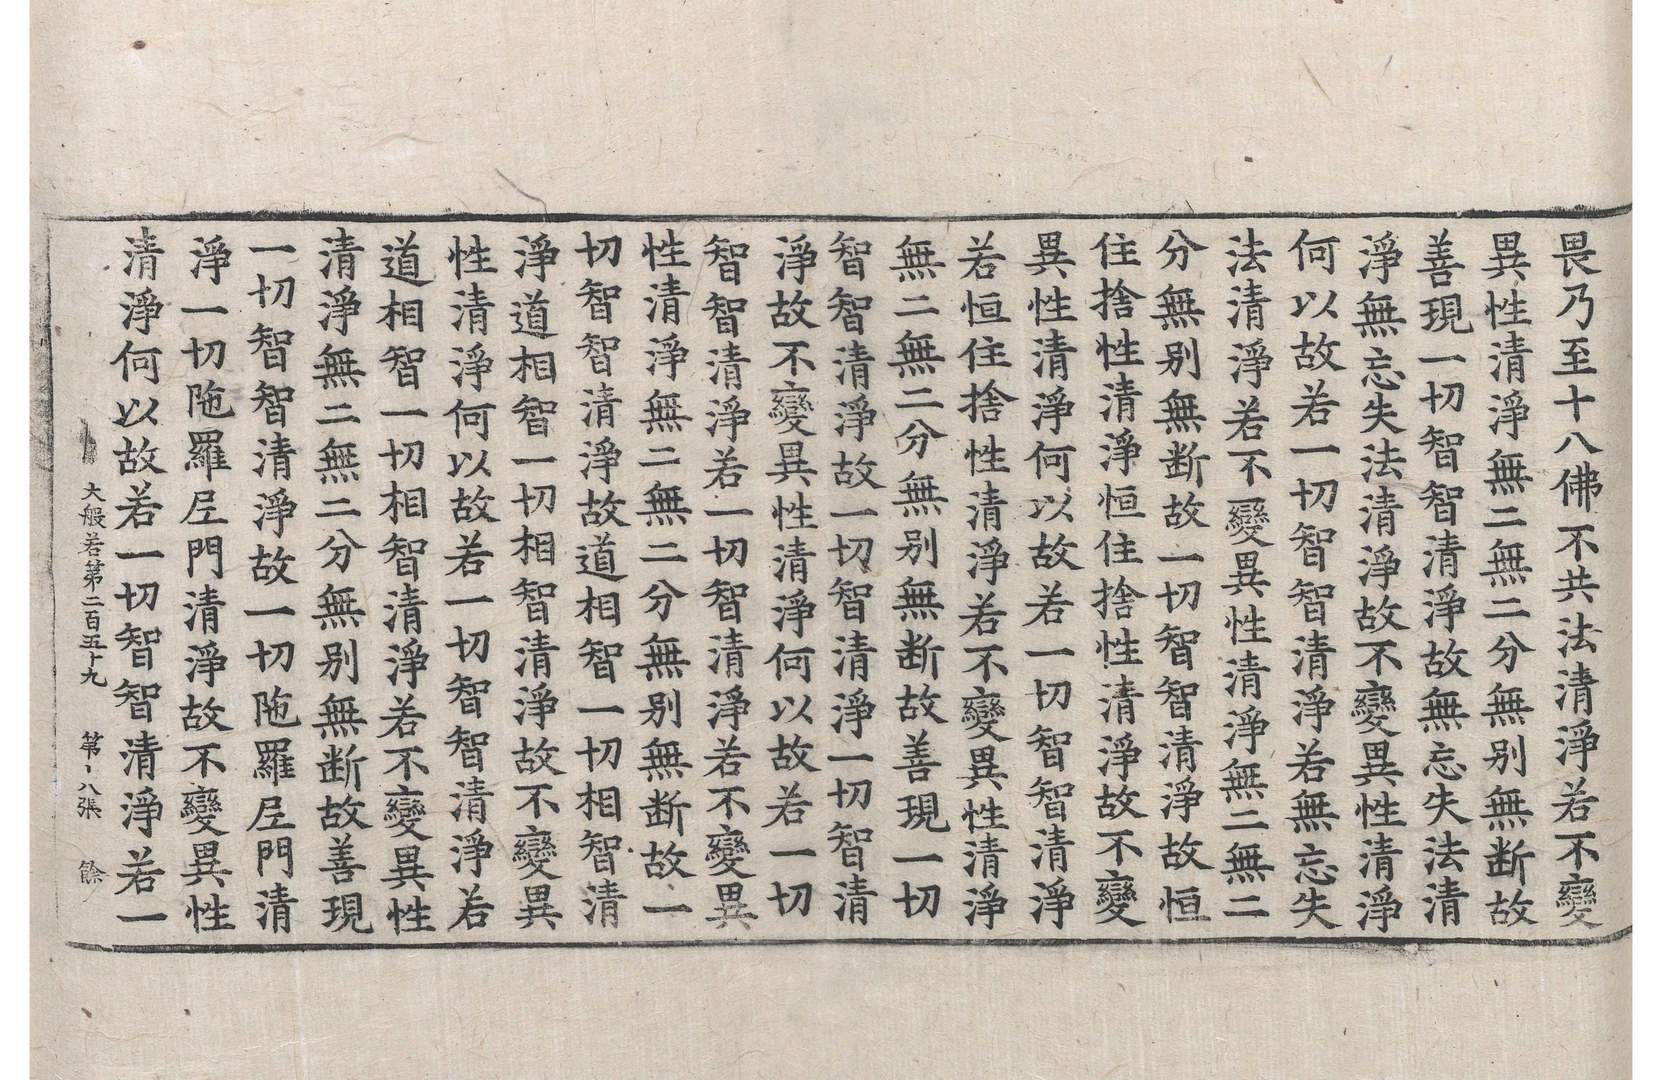 畏乃至十八佛不共法清淨若不變
異性清淨無二無二分無別無断故
善現一切智智清淨故無忘失法清
淨無忘失法清淨故不變異性清淨
何以故若一切智智清淨若無忘失
法清淨若不變異性清淨無二無二
分無別無断故一切智智清淨故恒
住捨性清淨恒住捨性清淨故不變
異性清淨何以故若一切智智清淨
若恒住捨性清淨若不變異性清淨
無二無二分無別無断故善現一切
智智清淨故一切智清淨一切智清
淨故不變異性清淨何以故若一切
智智清淨若一切智清淨若不變異
性清淨無二無二分無別無断故一
切智智清淨故道相智一切相智清
淨道相智一切相智清淨故不變異
性清淨何以故若一切智智清淨若
道相智一切相智清淨若不變異性
清淨無二無二分無別無断故善現
一切智智清淨故一切陁羅尼門清
淨一切陁羅尼門清淨故不變異性
清淨何以故若一切智智清淨若一
大般若第二百五十九 第八張 餘